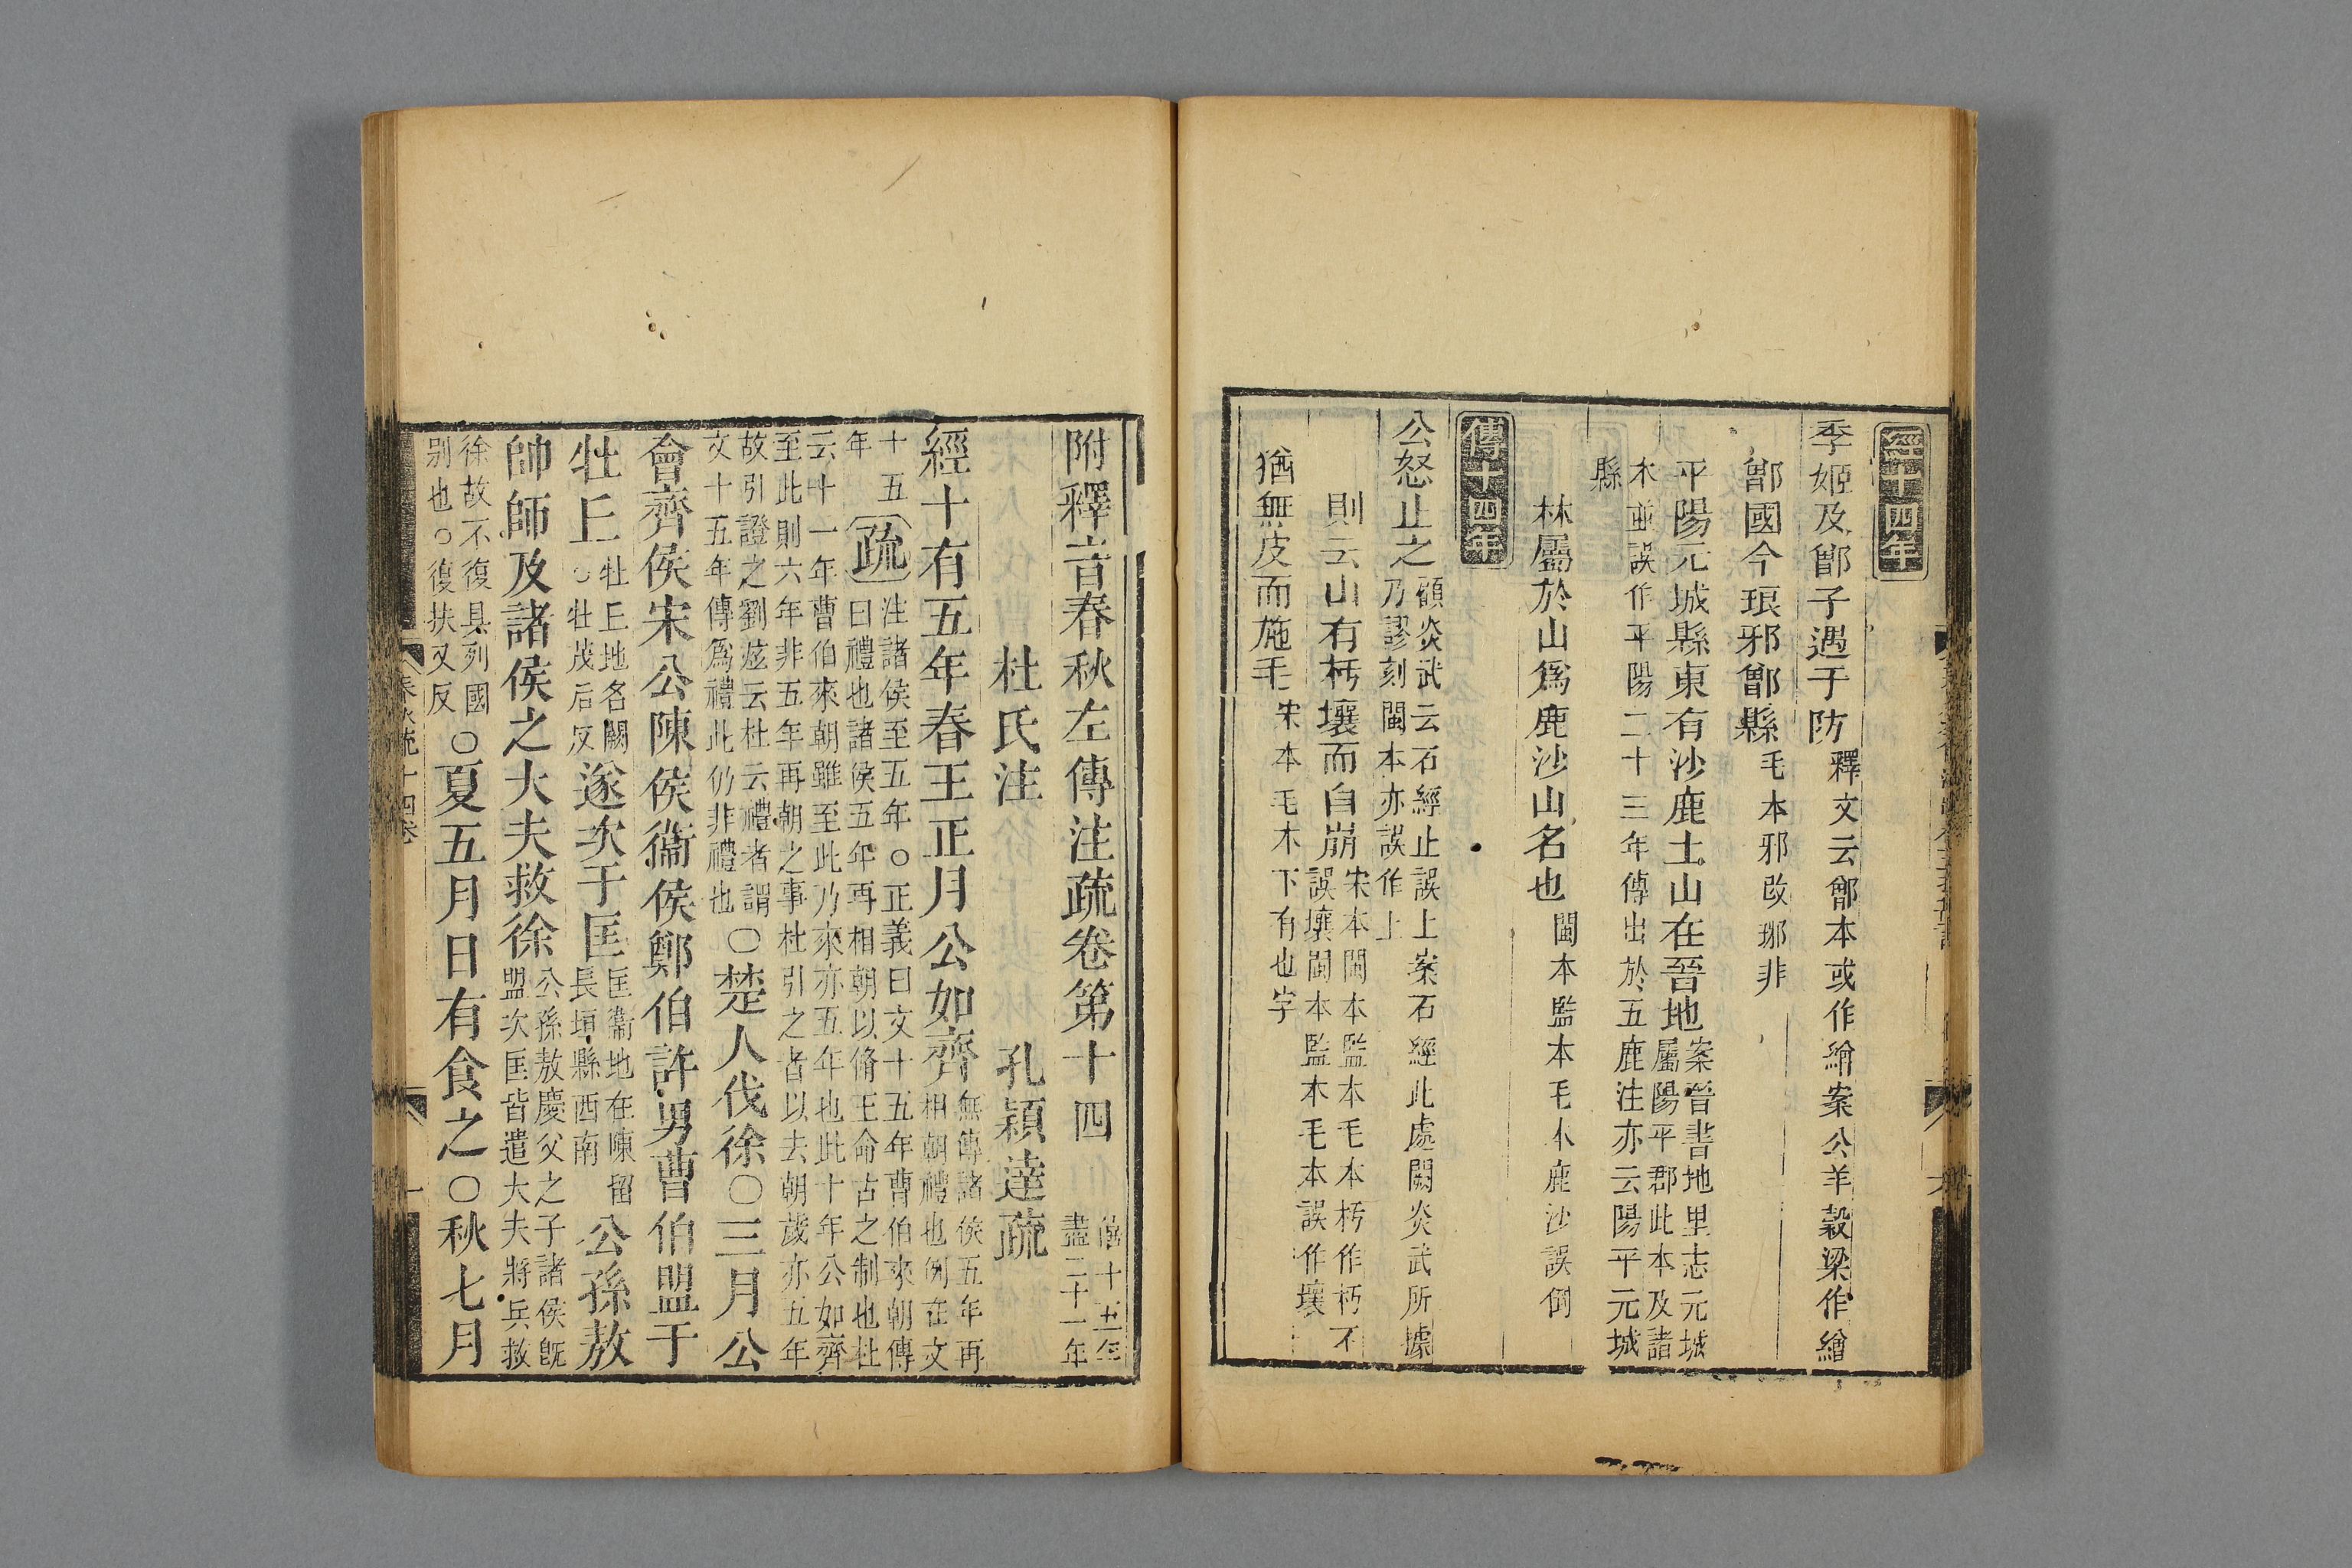 經十四年
季姬及鄫子遇于防釋文云鄫本或作繒案公羊穀梁作繒
鄫國今琅邪鄫縣毛本邪改琊非
平陽元城縣東有沙鹿土山在晉地案晉書地里志元城
屬陽平郡此本及諸
本並誤作平陽二十三年傳出於五鹿注亦云陽平元城
縣
林屬於山爲鹿沙山名也閩本監本毛本鹿沙誤倒
傳十四年
公怒止之顧炎武云石經止誤上案石經此處闕炎武所據
乃謬刻閩本亦誤作上
則云山有朽壤而自崩宋本閩本監本毛本朽作朽不
誤壤閩本監本毛本誤作壞
猶無皮而施毛宋本毛本下有也字
附釋音春秋左傳注疏卷第十四僖十五年
盡二十一年
杜氏注 孔穎達疏
經十有五年春王正月公如齊無傳諸侯五年再
相朝禮也例在文
十五
年
疏注諸侯至五年○正義曰文十五年曹伯來朝傳
曰禮也諸侯五年再相朝以脩王命古之制也杜
云十一年曹伯來朝雖至此乃來亦五年也此十年公如齊
至此則六年非五年再朝之事杜引之者以去朝歲亦五年
故引證之劉炫云杜云禮者謂
文十五年傳爲禮此仍非禮也○楚人伐徐○三月公
會齊侯宋公陳侯衞侯鄭伯許男曹伯盟于
牡丘牡丘地名闕
○牡茂后反遂次于匡匡衞地在陳留
長垣縣西南公孫敖
帥師及諸侯之大夫救徐公孫敖慶父之子諸侯旣
盟次匡皆遣大夫將兵救
徐故不復具列國
别也○復扶又反○夏五月日有食之○秋七月